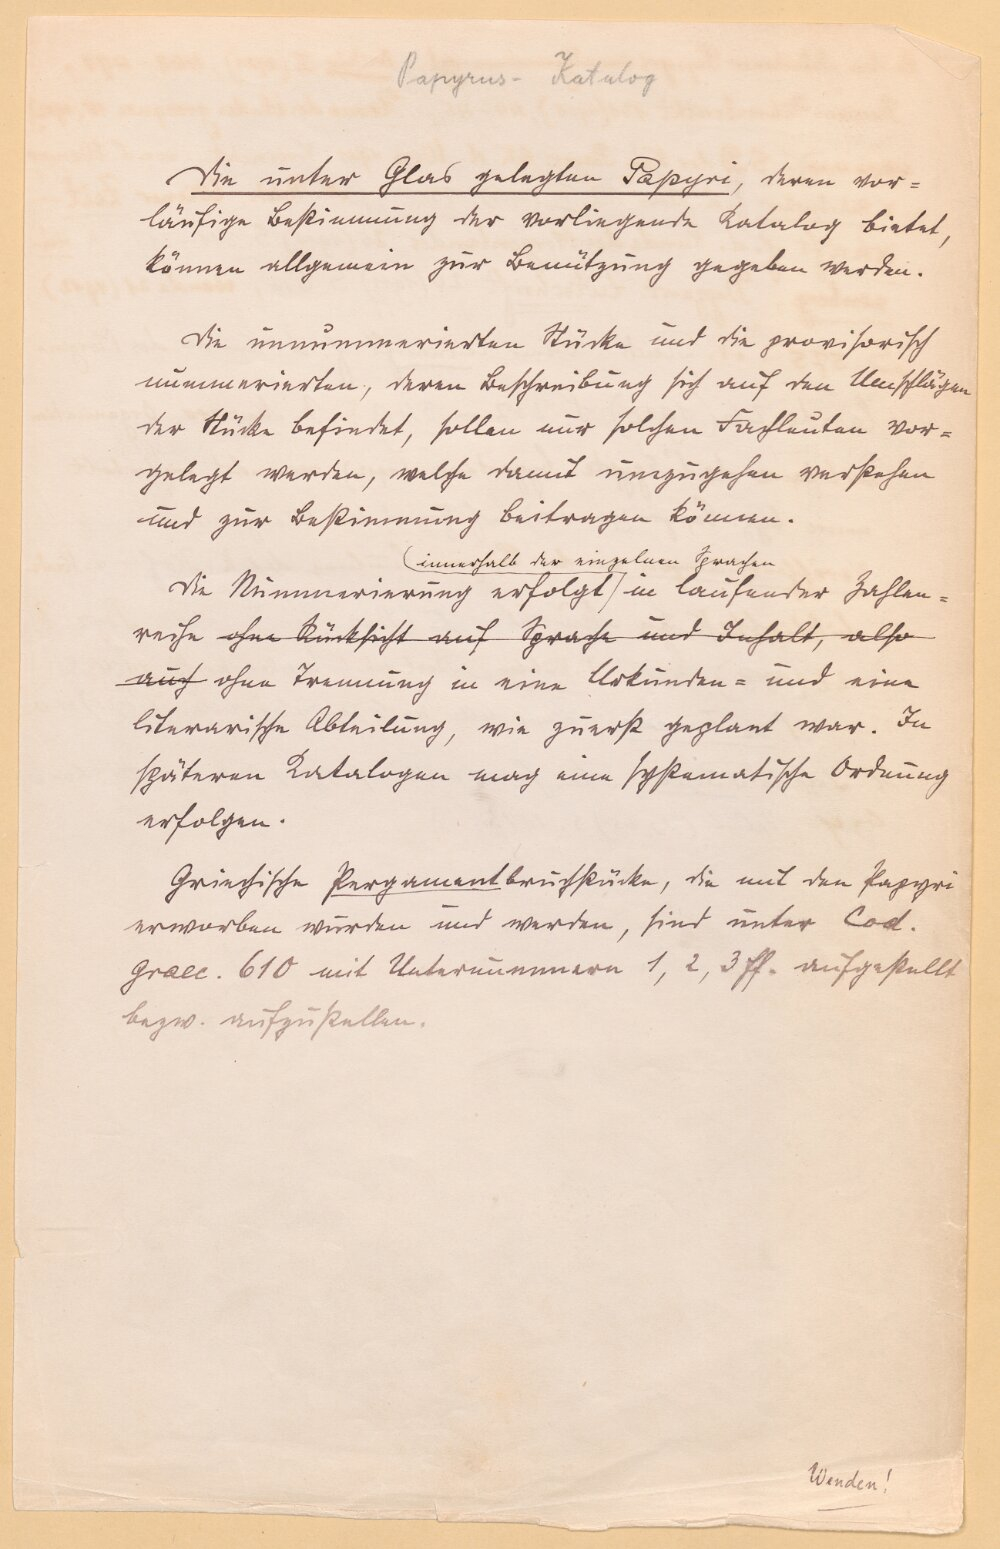 Papyrus-Katalog
Die unter Glas gelegten Papyri, deren vor=
läufige Bestimmung der vorliegende Katalog bietet,
können allgemein zur Benützung gegeben werden.
Die unnummerierten Stücke und die provisorisch
nummerierten, deren Beschreibung sich auf den Umschlägen
der Stücke befindet, sollen nur solchen Fachleuten vor=
gelegt werden, welche damit umzugehen verstehen
und zur Bestimmung beitragen können.
innerhalb der einzelnen Sprachen
Die Nummerierung erfolgt in laufender Zahlen=
reihe ohne Rücksicht auf Sprache und Inhalt, also
auch ohne Trennung in eine Urkunden= und eine
literarische Abteilung, wie zuerst geplant war. In
späteren Katalogen mag eine systematische Ordnung
erfolgen.
Griechische Pergamentbruchstücke, die mit den Papyri
erworben wurden und werden, sind unter Cod.
graec. 610 mit Unternummern 1, 2, 3 ff. aufgestellt
bezw. aufzustellen.
Wenden!